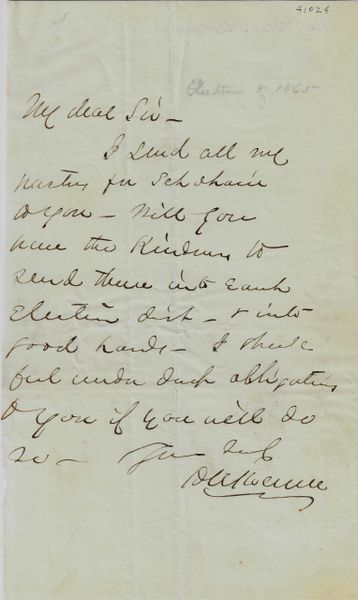 41024
Election of 1865
My dear Sir –
I send all my
for Schoharie
to you – Will you
have the kindness to
send them into each
Election dist – & into
good hands – I shall
feel under obligations
to you if you will do
so –